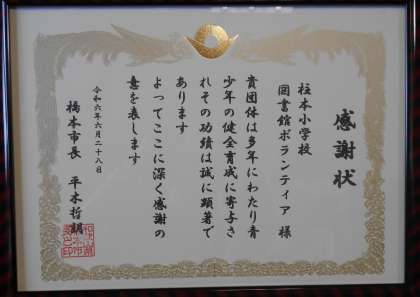 感謝状
柱本小学校
図書館ボランティア 様
貴団体は多年にわたり青
少年の健全育成に寄与さ
れその功績は誠に顕著で
あります
よってここに深く感謝の
意を表します
令和六年六月二十八日
橋本市長 平木哲朗